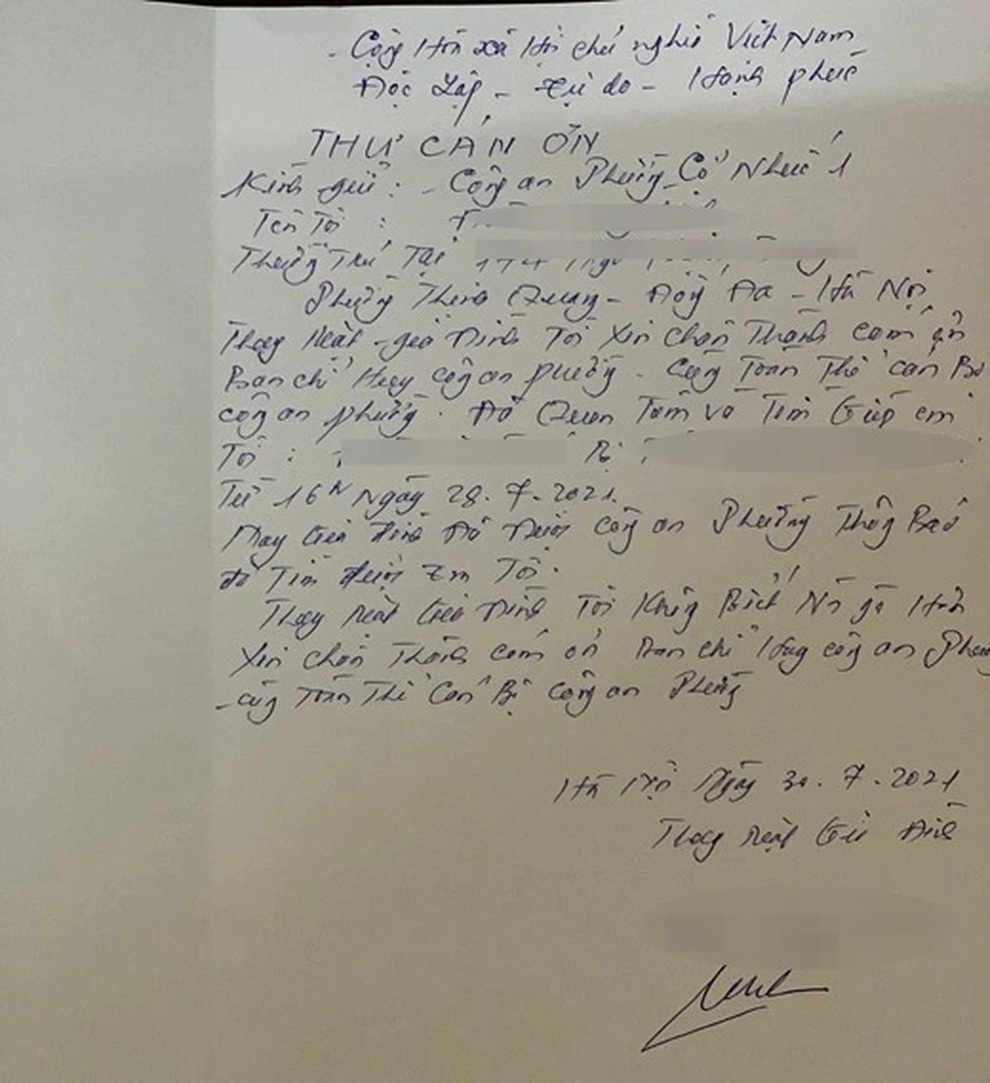 Cộng Hòa xã Hội chủ nghĩa Việt Nam
Độc Lập - Tự do - Hạnh phúc
THƯ CẢM ƠN
Kính gửi : - Công an Phường Cổ Nhuế 1
Tên Tôi :
Thường Trú Tại
Phường Thịnh Quang - Đống Đa - Hà Nội
Thay mặt - gia Đình Tôi Xin chân Thành cảm ơn
Ban chỉ Huy công an phường. Cùng Toàn Thể cán Bộ
công an phường. Đã Quan Tâm và Tìm Giúp em
Tôi : Bị
Từ 16h Ngày 28.7.2021
May Gia Đình Đã Được Công an Phường Thông Báo
đã Tìm được Em Tôi.
Thay mặt Gia Đình Tôi Không Biết Nói gì Hơn
Xin chân Thành cảm ơn Ban chỉ Huy công an
- cùng Toàn Thể Cán Bộ Công an Phường
Hà Nội Ngày 30.7.2021
Thay mặt Gia Đình